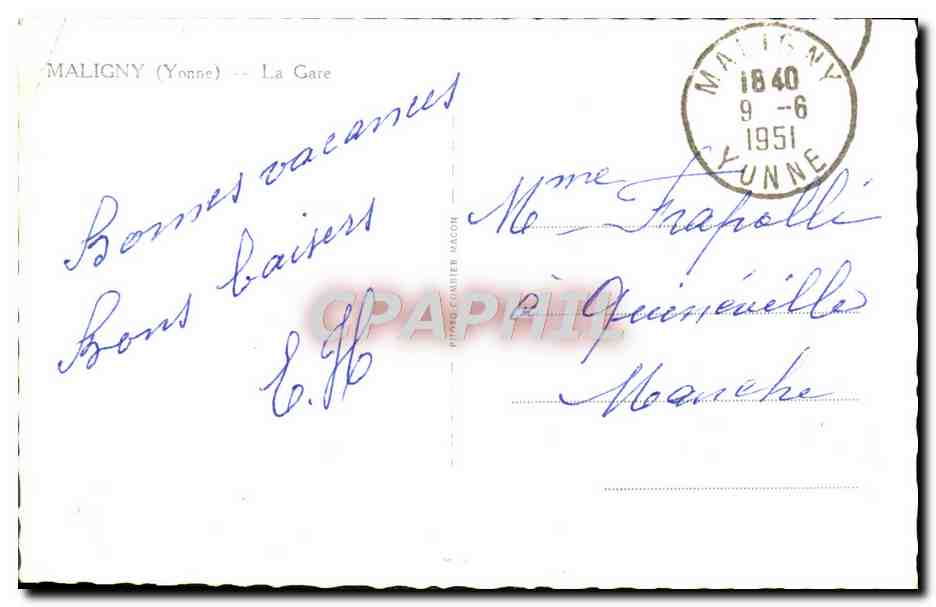 MALIGNY (Yonne) -- La Gare
MALIGNY
18 40
9 -6
1951
YONNE
Bonnes vacances
Bons baisers
E.H
PHOTO-COMBIER MACON
CPAPHIL
Mme Frapolli
à Quinéville
Manche